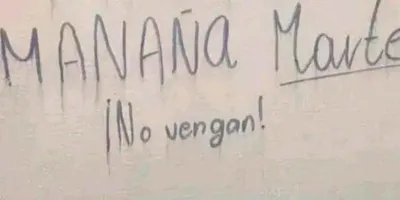 MANAÑA Marte
¡No vengan!